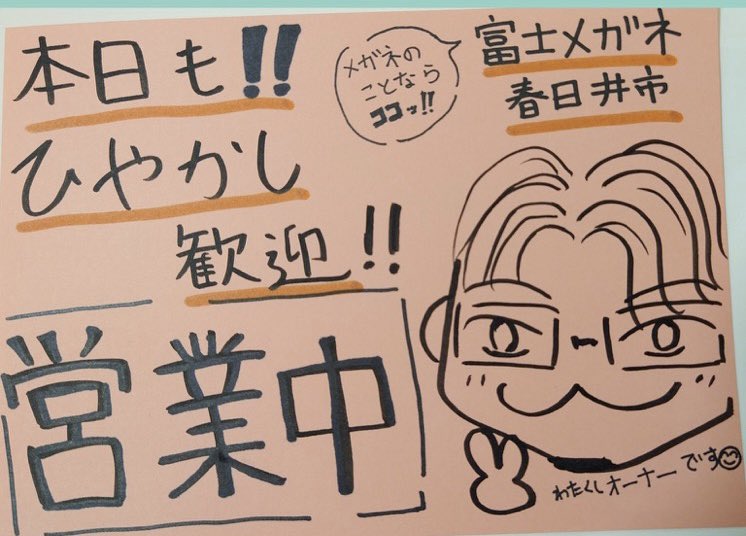 本日も!!
ひやかし
歓迎!!
営業中
メガネの
ことなら
ココッ!!
富士メガネ
春日井市
わたくしオーナーです